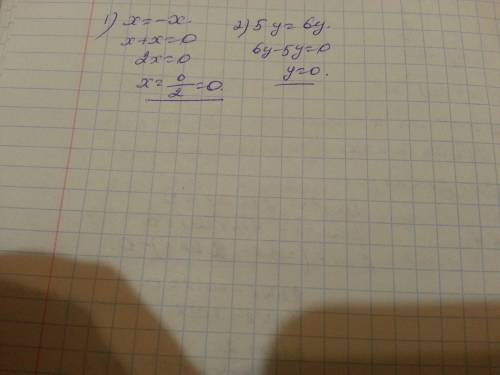 1) x = -x.
x+x=0
2x=0
x= 0/2 =0.
2) 5y = 6y.
6y-5y=0
y=0.